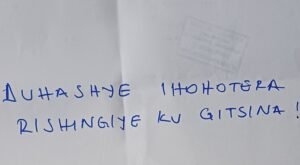 DUHASHYE IHOHOTERA
RISHINGIYE KU GITSINA!